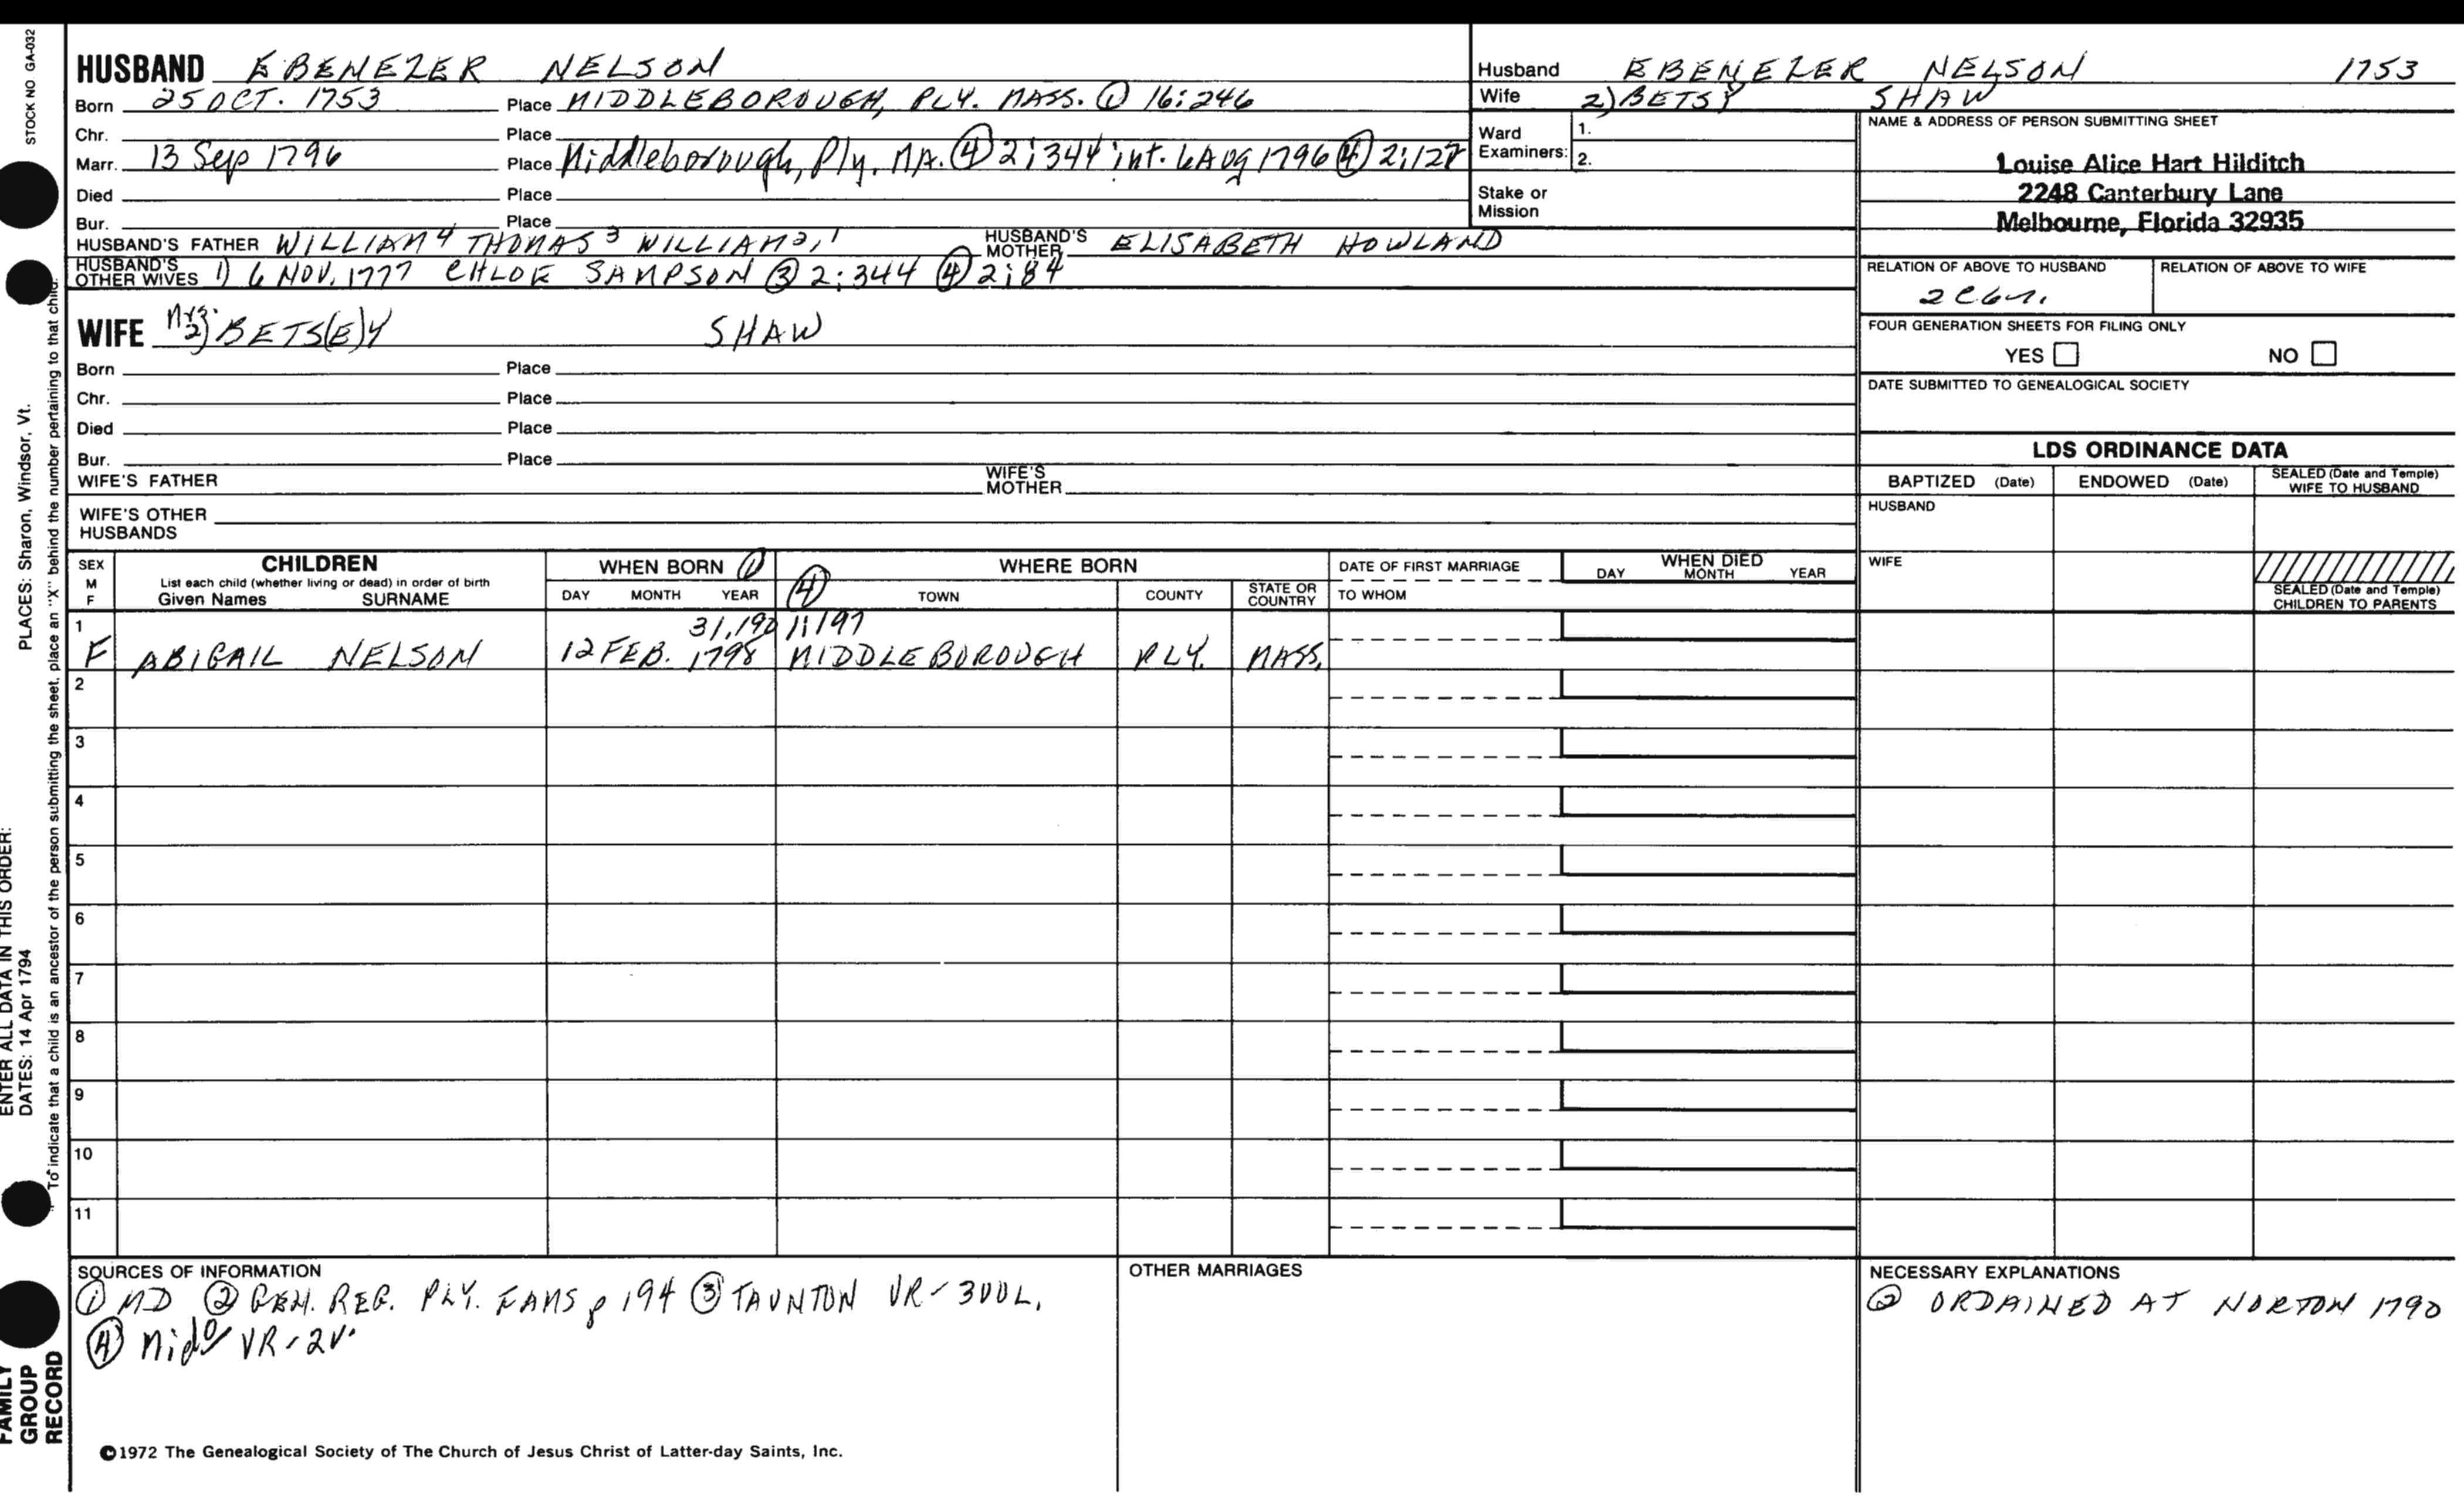 STOCK NO GA-032
HUSBAND EBENEZER NELSON
Born 25 OCT. 1753 Place MIDDLEBOROUGH, PLY. MASS. ① 16:246
Chr. Place
Marr. 13 Sep 1796 Place Middleborough, Ply. MA. ④ 2:344 int. 6 Aug 1796 ④ 2:127
Died Place
Bur. Place
HUSBAND'S FATHER WILLIAM⁴ THOMAS³ WILLIAM²,¹ HUSBAND'S MOTHER ELISABETH HOWLAND
HUSBAND'S OTHER WIVES 1) 6 NOV. 1777 CHLOE SAMPSON ③ 2:344 ④ 2:84
WIFE Mrs. 2) BETS(E)Y SHAW
Born Place
Chr. Place
Died Place
Bur. Place
WIFE'S FATHER WIFE'S MOTHER
WIFE'S OTHER HUSBANDS
Husband EBENEZER NELSON 1753
Wife 2) BETSY SHAW
Ward Examiners: 1.
2.
Stake or Mission
NAME & ADDRESS OF PERSON SUBMITTING SHEET
Louise Alice Hart Hilditch
2248 Canterbury Lane
Melbourne, Florida 32935
RELATION OF ABOVE TO HUSBAND RELATION OF ABOVE TO WIFE
FOUR GENERATION SHEETS FOR FILING ONLY
YES NO
DATE SUBMITTED TO GENEALOGICAL SOCIETY
LDS ORDINANCE DATA
BAPTIZED (Date) ENDOWED (Date) SEALED (Date and Temple) WIFE TO HUSBAND
HUSBAND
WIFE
SEALED (Date and Temple) CHILDREN TO PARENTS
SEX M F CHILDREN WHEN BORN ① WHERE BORN DATE OF FIRST MARRIAGE WHEN DIED
List each child (whether living or dead) in order of birth
Given Names SURNAME DAY MONTH YEAR ④ TOWN COUNTY STATE OR COUNTRY TO WHOM DAY MONTH YEAR
1 31,190 1:197
F ABIGAIL NELSON 12 FEB. 1798 MIDDLEBOROUGH PLY. MASS.
2
3
4
5
6
7
8
9
10
11
SOURCES OF INFORMATION
① MD ② GEN. REG. PLY. FAMS p 194 ③ TAUNTON VR - 3VOL.
④ Mido VR - 2V.
OTHER MARRIAGES
NECESSARY EXPLANATIONS
② ORDAINED AT NORTON 1790
©1972 The Genealogical Society of The Church of Jesus Christ of Latter-day Saints, Inc.
ENTER ALL DATA IN THIS ORDER:
DATES: 14 Apr 1794 PLACES: Sharon, Windsor, Vt.
To indicate that a child is an ancestor of the person submitting the sheet, place an "X" behind the number pertaining to that child.
FAMILY
GROUP
RECORD